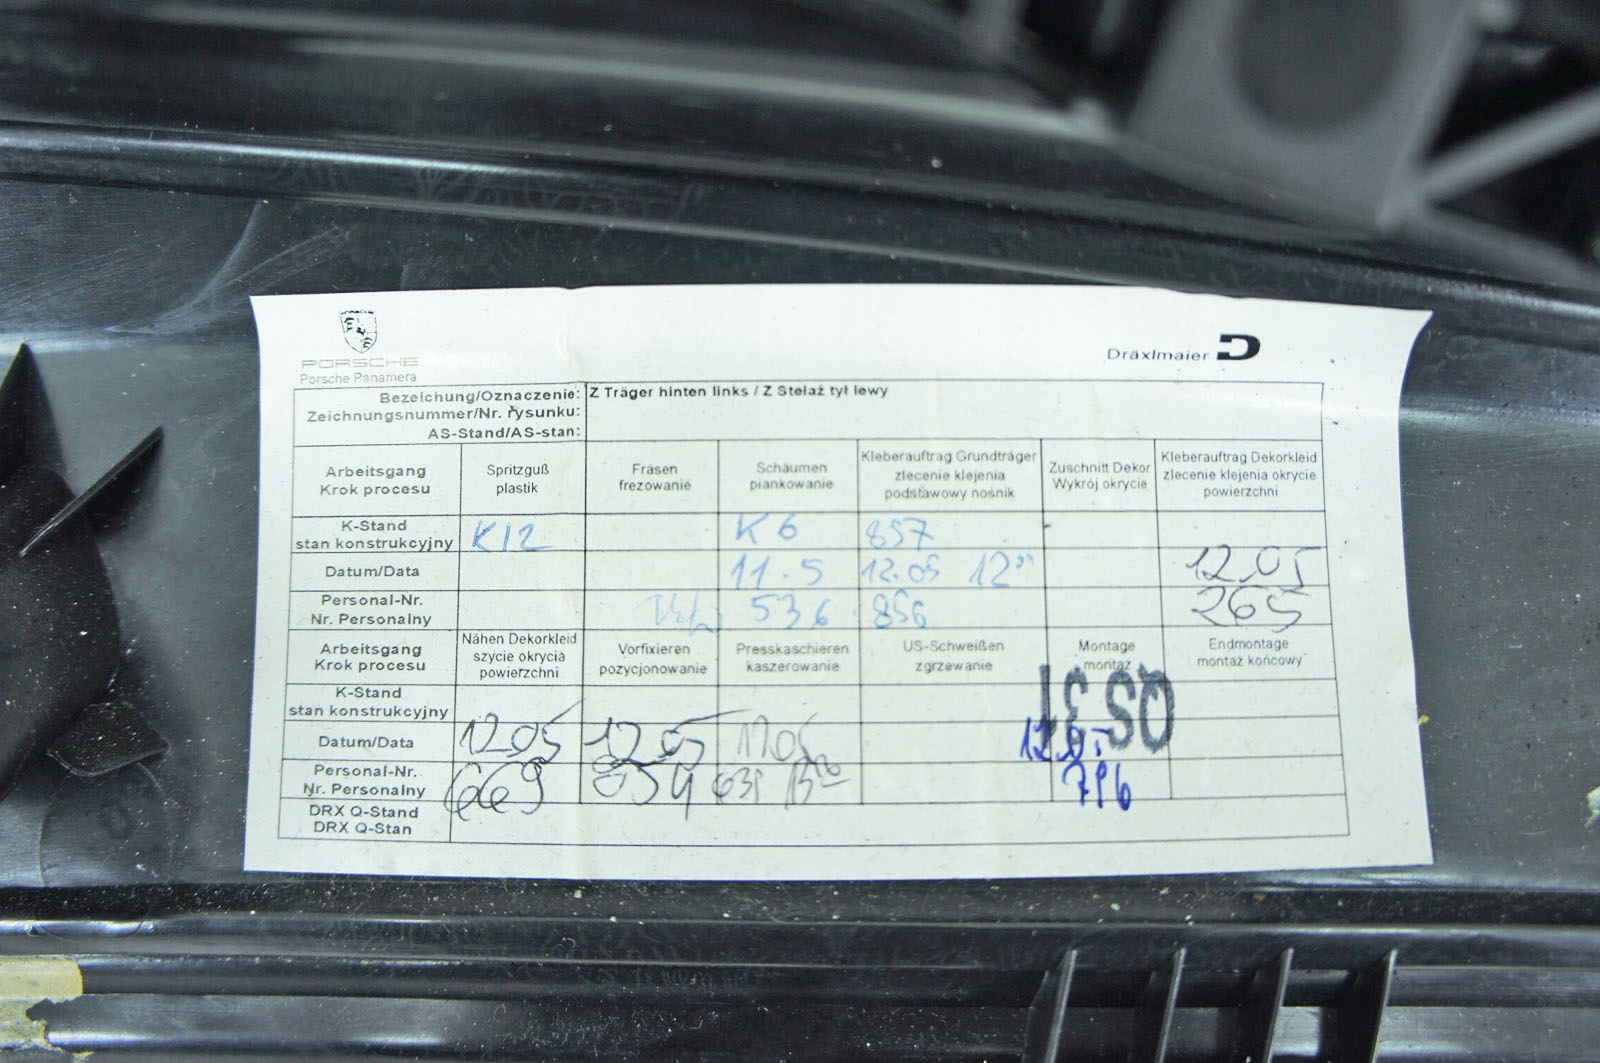 PORSCHE
Porsche Panamera
Dräxlmaier
Bezeichung/Oznaczenie: Z Träger hinten links / Z Stelaż tył lewy
Zeichnungsnummer/Nr. rysunku:
AS-Stand/AS-stan:
Arbeitsgang Krok procesu
Spritzguß plastik
Fräsen frezowanie
Schäumen piankowanie
Kleberauftrag Grundträger zlecenie klejenia podstawowy nośnik
Zuschnitt Dekor Wykrój okrycie
Kleberauftrag Dekorkleid zlecenie klejenia okrycie powierzchni
K-Stand stan konstrukcyjny K12 K6 857
Datum/Data 11.5 12.05 12.05
Personal-Nr. Nr. Personalny 536 856 265
Arbeitsgang Krok procesu
Nähen Dekorkleid szycie okrycia powierzchni
Vorfixieren pozycjonowanie
Presskaschieren kaszerowanie
US-Schweißen zgrzewanie
Montage montaż
Endmontage montaż końcowy
K-Stand stan konstrukcyjny
QS 31
Datum/Data 12.05 12.05 12.05 12.05
Personal-Nr. Nr. Personalny 669 034 796
DRX Q-Stand
DRX Q-Stan